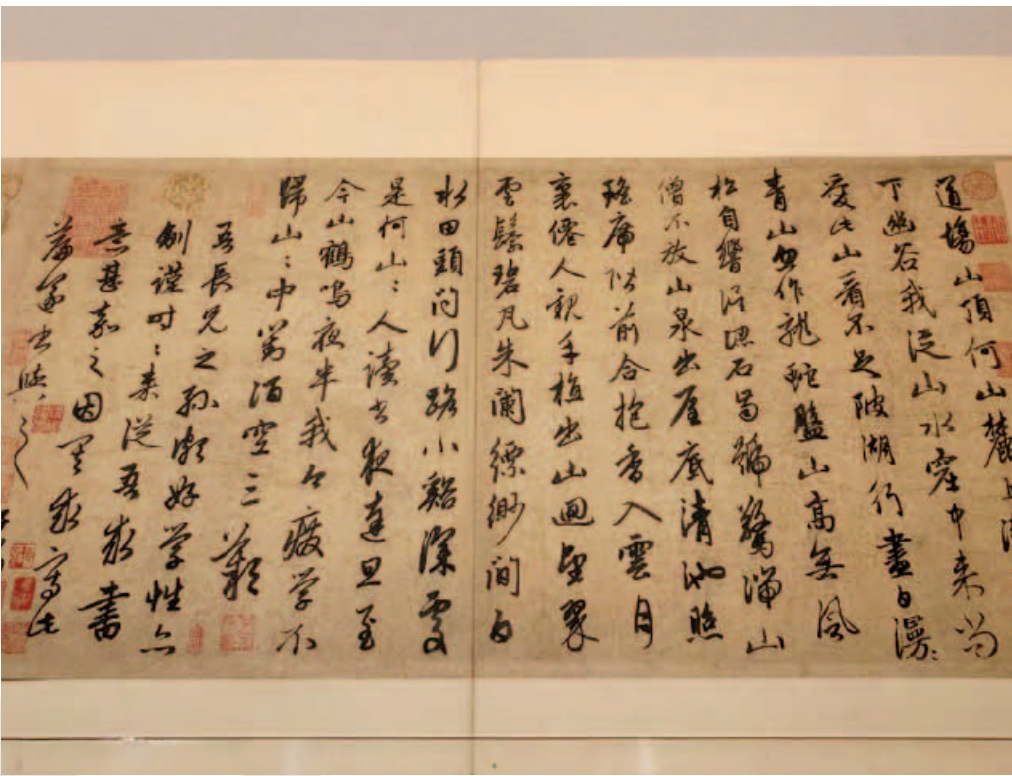 道場山頂何山麓上
下幽谷我從山水窟中來尚
愛此山看不足陂湖行盡白漫〻
青山忽作龍蛇盤山高無風
松自響誤認石齒號驚湍山
僧不放山泉出屋底清池照
瑤席階前合抱香入雲月
裏僊人親手植出山迴望翠
雲鬟碧瓦朱闌縹緲間白
水田頭問行路小谿深處
是何山〻人讀書夜達旦至
今山鶴鳴夜半我今廢學不
歸山〻中對酒空三歎
吾長兄之孫好學性亦
謹時〻來從吾求書
意甚嘉之因其求寫此
篇書與之